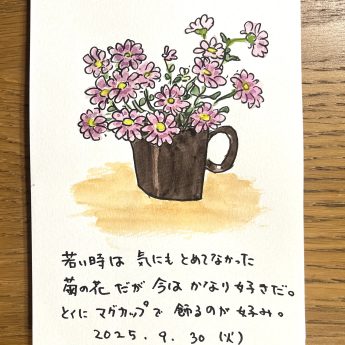 若い時は 気にも とめてなかった
菊の花 だが 今は かなり 好きだ。
とくに マグカップで 飾るのが 好み。
2025. 9. 30 (火)